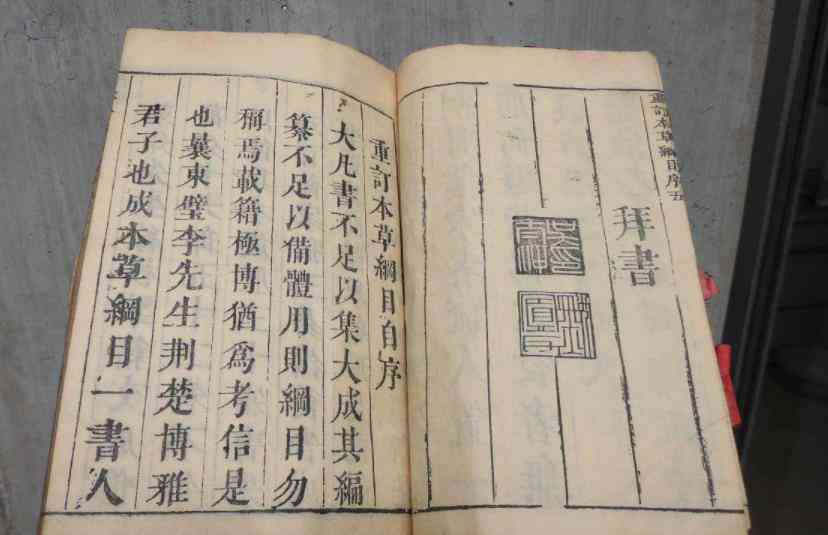 重訂本草綱目序五
拜書
重訂本草綱目自序
大凡書不足以集大成其編
纂不足以備體用則綱目勿
稱焉載籍極博猶為考信是
也曩東璧李先生荆楚博雅
君子也成本草綱目一書人